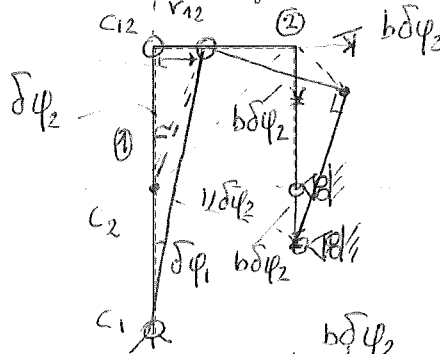 C₁₂ r₁₂ ② bδφ₂
δφ₂ bδφ₂
①
C₂ δφ₂
δφ₁ bδφ₂
C₁
bδφ₂